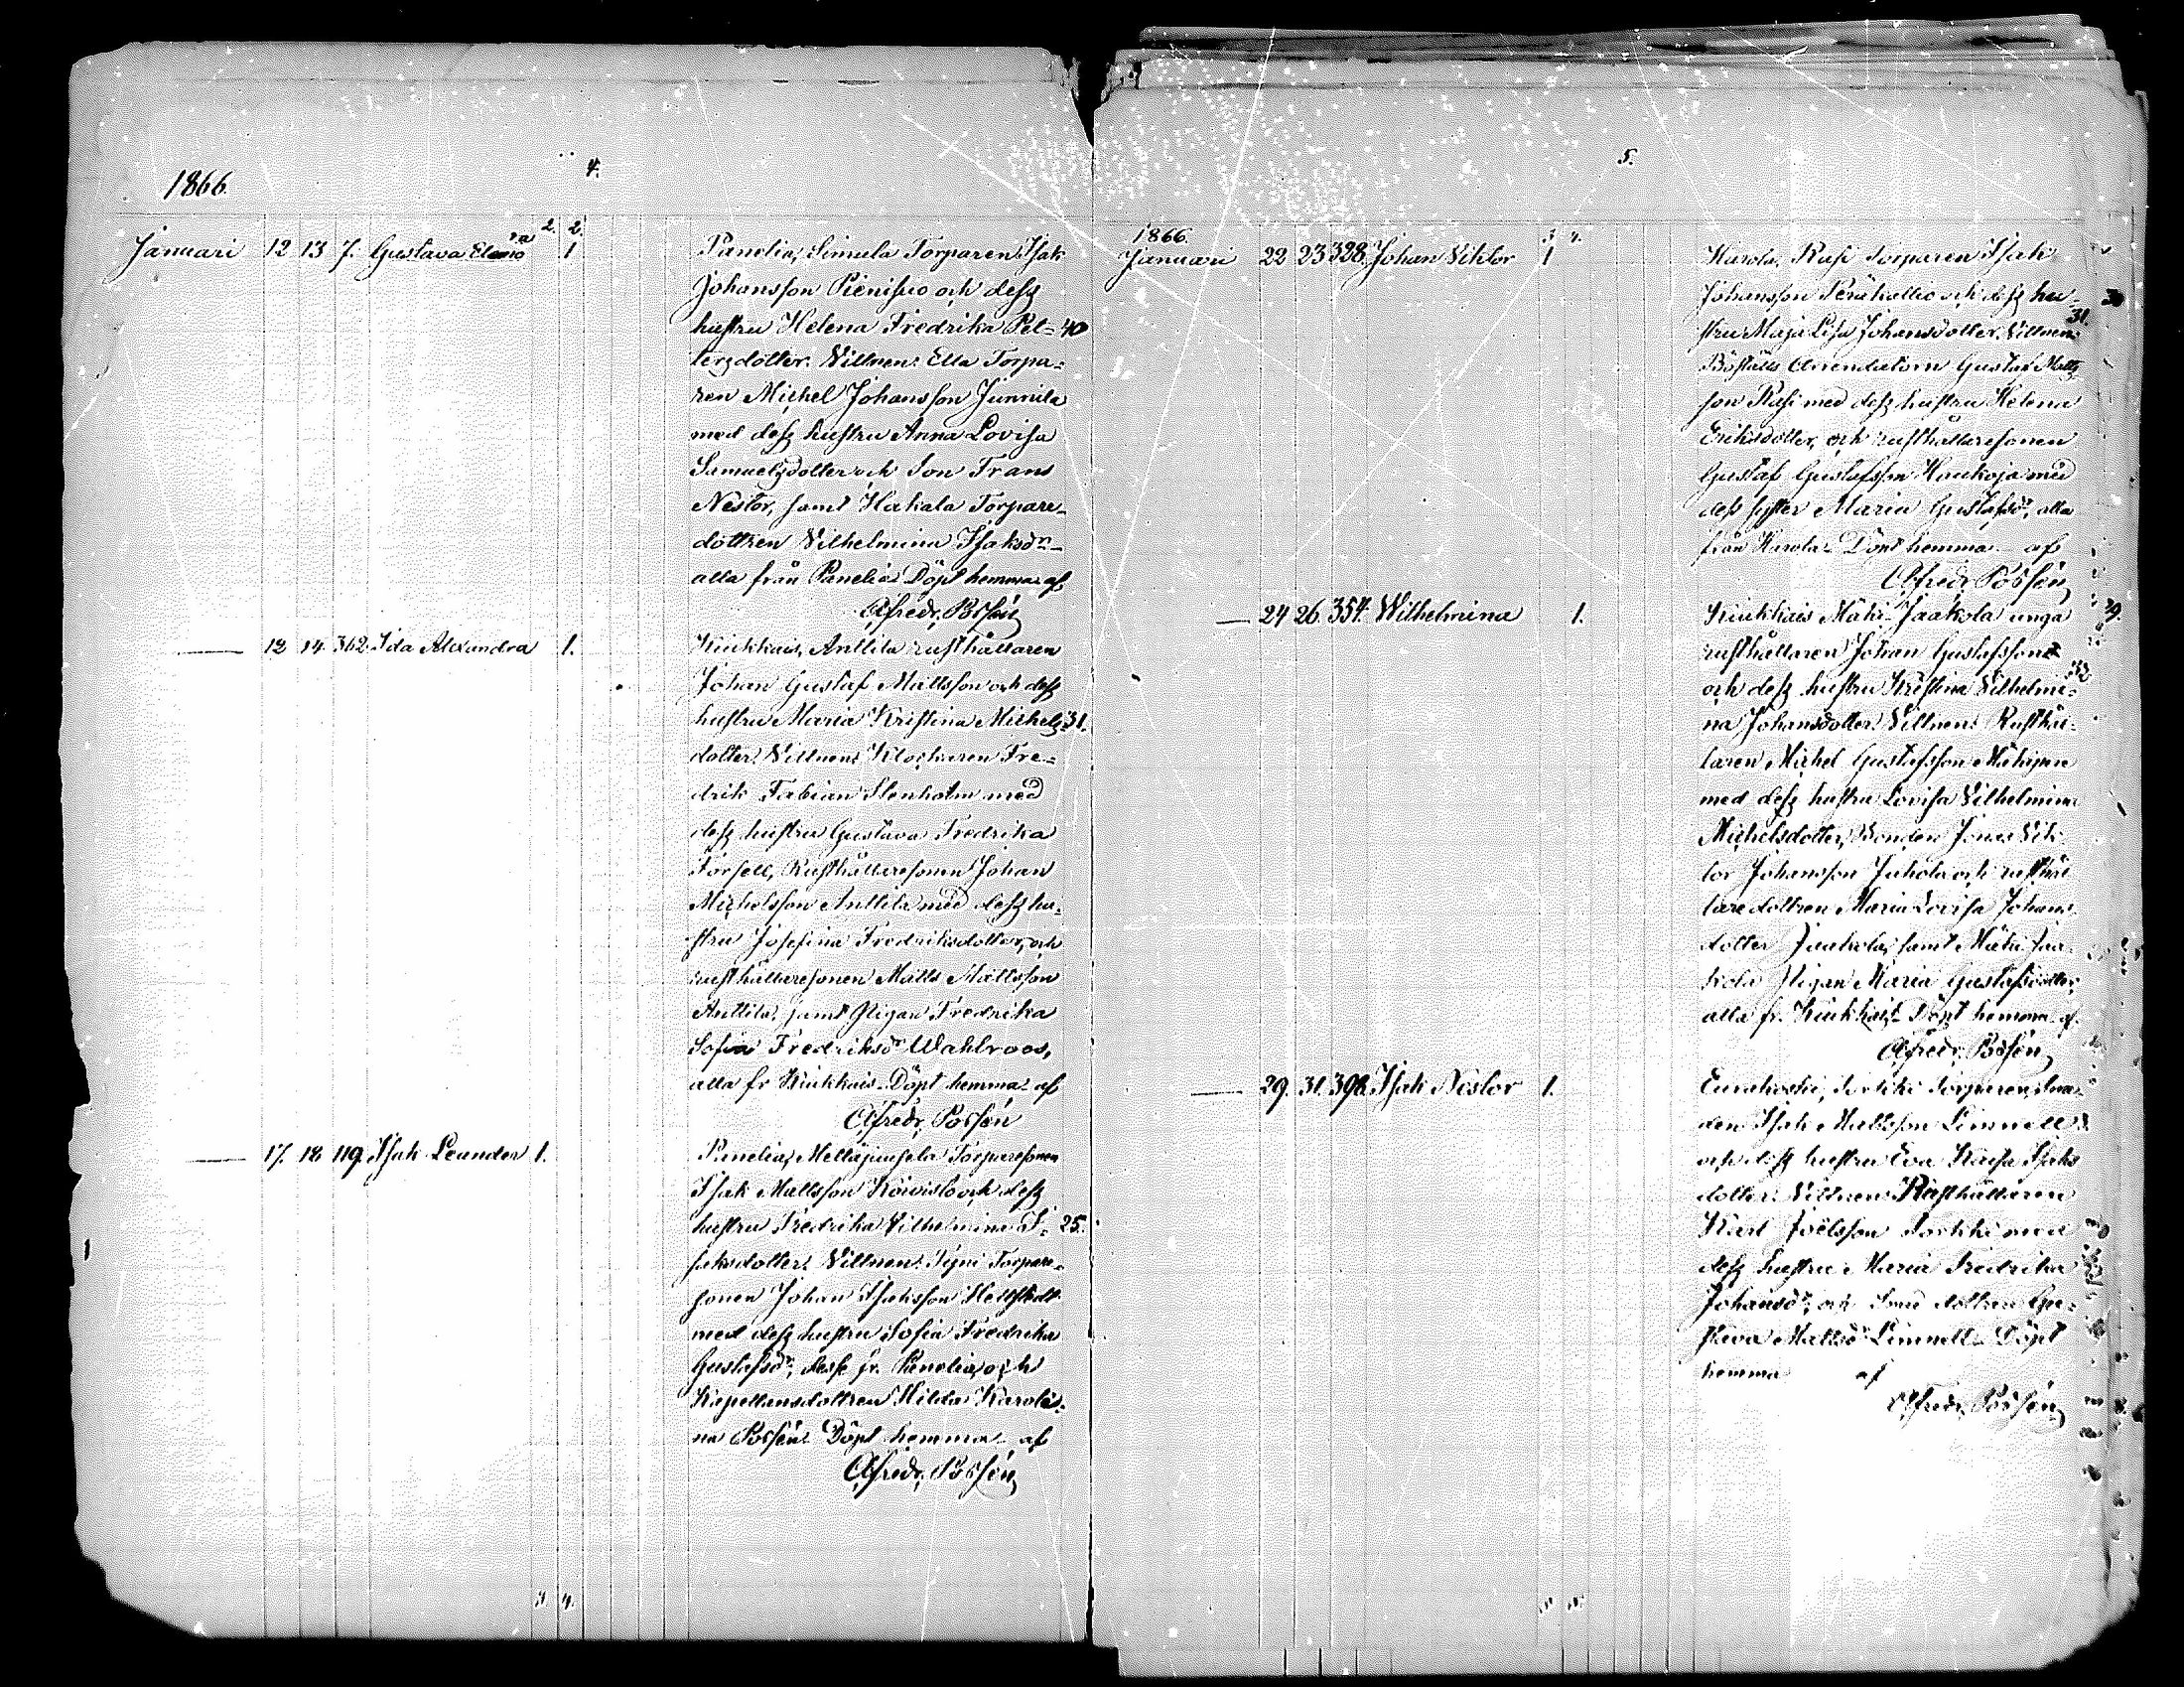 4.
1866.
2. 2.
Januari 12 13 7. Gustava Eleno ra 1 Panelia, Simula Torparen Isak
Johansson Pienisuo och dess
hustru Helena Fredrika Pet= 40
tersdotter. Vittnen: Ella Torpa=
ren Michel Johansson Junnila
med dess hustru Anna Lovisa
Samuelsdotter och Son Frans
Nestor, samt Hakala Torpare-
dottren Vilhelmina Isaksdr
alla från Panelia Döpt hemma af
Alfredr. Possén
— 12 14 362 Ida Alexandra 1. Kiukkais, Anttila rusthållaren
Johan Gustaf Mattsson och dess
hustru Maria Kristina Michels= 31.
dotter. Vittnen: Klockaren Fre=
drik Fabian Stenholm med
dess hustru Gustava Fredrika
Forsell, Rusthållaresonen Johan
Michelsson Anttila med dess hu=
stru Josefina Fredriksdotter, och
rusthållaresonen Matts Mattsson
Anttila, samt Pigan Fredrika
Sofia Fredriksdr Wahlroos,
alla fr Kiukkais. Döpt hemma af
Alfredr. Possén
— 17. 18 119. Isak Leander 1. Panelia, Mellajuusela Torparesonen
Isak Mattsson Koivisto och dess
hustru Fredrika Vilhelmina I= 25.
saksdotter. Vittnen: Torpare=
sonen Johan Isaksson Hellstedt
med dess hustru Sofia Fredrika
Gustafsdr, desse fr. Panelia, och
Kapellansdottren Hilda Karoli=
na Possén. Döpt hemma af
Alfredr. Possén
3. 4.
5.
1866. 3 4.
Januari 22 23 328. Johan Viktor 1 Harola, Rasi Torparen Isak
Johansson Peräkallio och dess hu=
stru Maja Lisa Johansdotter. Vittnen: 31.
Boställs Arrendatorn Gustaf Matts
son Rasi med dess hustru Helena
Eriksdotter, och rusthållaresonen
Gustaf Gustafsson Haukoja med
dess syster Maria Gustafsdr, alla
från Harola. Döpt hemma af
Alfredr. Possén
— 24 26. 354. Wilhelmina 1. Kiukkais Mäki-Jaakola unga 39.
rusthållaren Johan Gustafsson
och dess hustru Kristina Vilhelmi= 32
na Johansdotter. Vittnen: Rusthål=
laren Michel Gustafsson
med dess hustru Lovisa Vilhelmina
Michelsdotter, Bonden Jonas Vik
tor Johansson Juhola och rusthål
laredottren Maria Lovisa Johans
dotter Jaakola, samt Mäki Jaa=
kola Pigan Maria Gustafsdotter,
alla fr. Kiukkais. Döpt hemma af
Alfredr. Possén
— 29. 31. 398. Isak Nestor 1. Eurakoski, Sorkki Torparen, Sme=
den Isak Mattsson Linnell
och dess hustru Eva Kaisa Isaks
dotter. Vittnen: Rusthållaren
Karl Joëlsson Sorkki med
dess hustru Maria Fredrika
Johansdr, och Smed dottren Gu=
stava Mattsdr Linnell. Döpt
hemma af
Alfredr. Possén